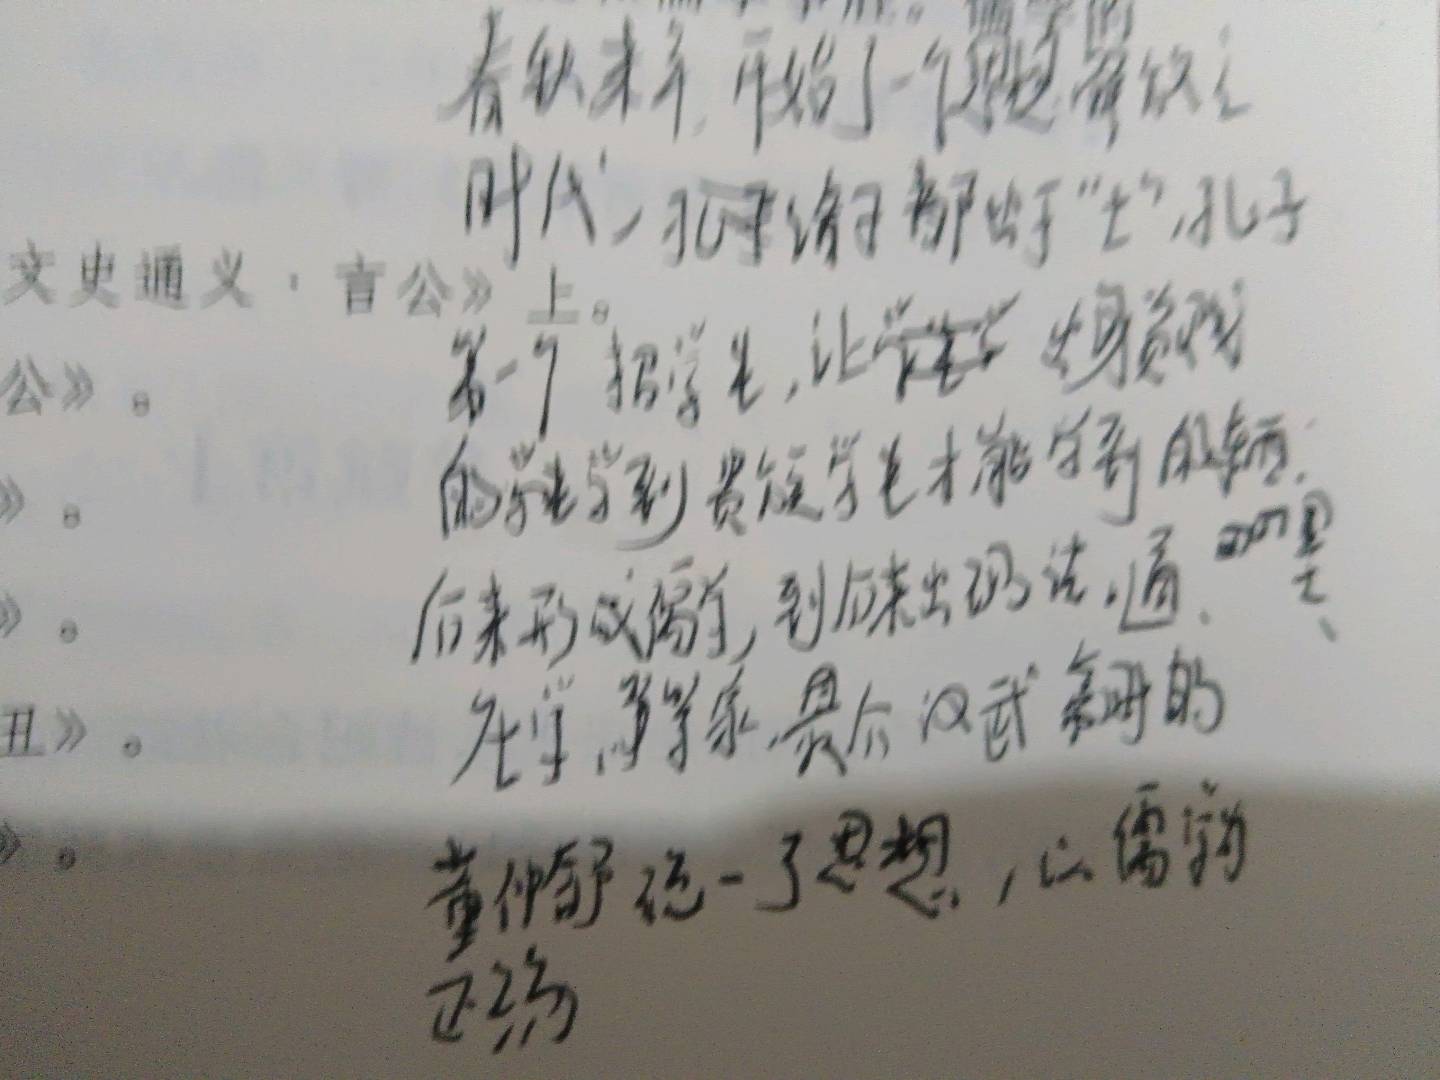 春秋末年,开始了一个思想解放之
时代,孔子墨子都出于"士",孔子
文史通义·言公》上。
第一个招学生,让出身贫贱
公》。
的学生学到贵族学生才能学到的东西.
》。
后来形成儒学,到后来出现法.道.
》。
先学,等学家,最后汉武帝时的
丑》。
董仲舒统一了思想,以儒学为
》。
正统